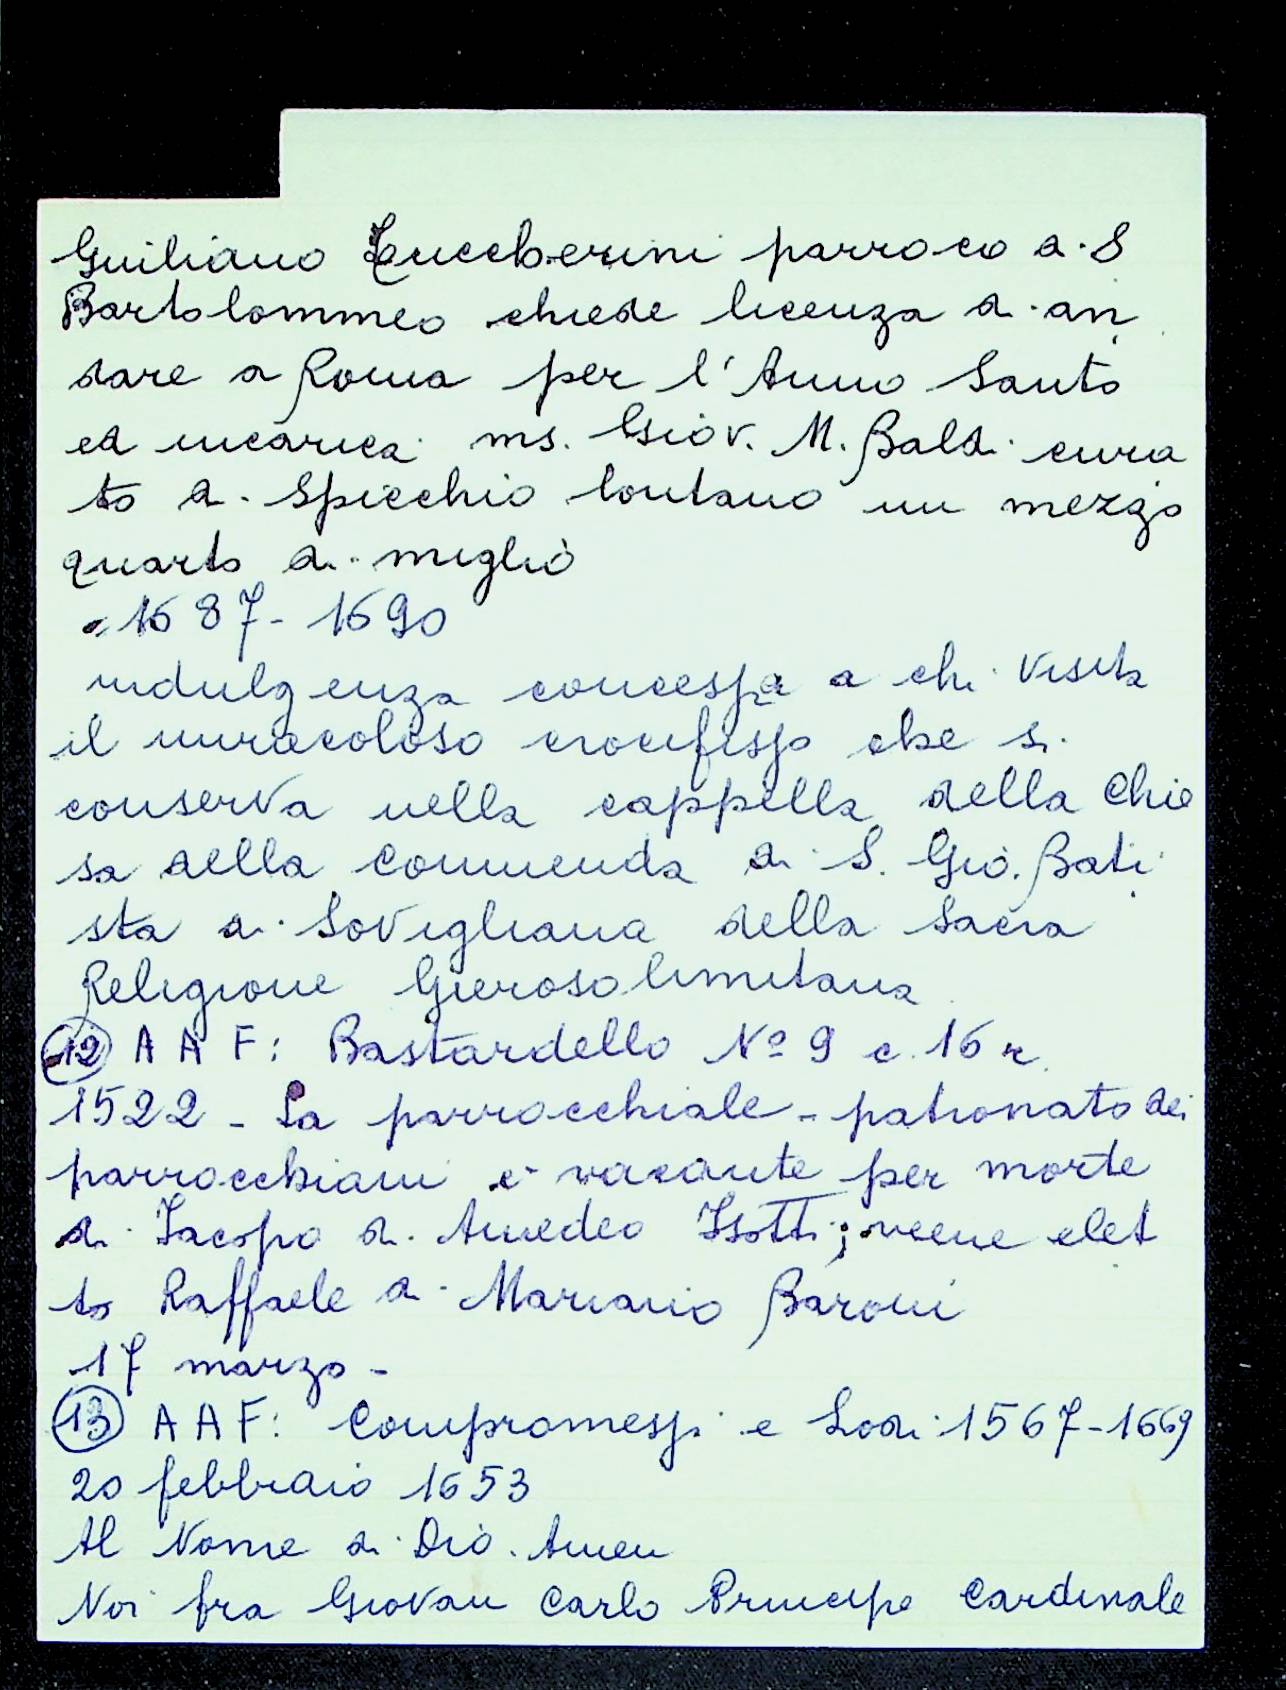 Guiliano Zuccherini parroco a S
Bartolommeo chiede licenza di an
dare a Roma per l'Anno Santo
ed incarica ms. Giov. M. Baldi cura
to di Spicchio lontano un mezzo
quarto di miglio
1687-1690
indulgenza concessa a chi visita
il miracoloso crocifisso che si
conserva nella cappella della Chie
sa della Commenda di S. Gio. Bati
sta di Sovigliana della Sacra
Religione Gierosolimitana
12 AAF: Bastardello Nº 9 c. 16 r
1522 - La parrocchiale - patronato dei
parrocchiani è vacante per morte
di Iacopo di Amedeo Isotti; venne elet
to Raffaele di Mariano Baroni
17 marzo -
13 AAF: Compromessi e Lodi 1567-1669
20 febbraio 1653
Al Nome di Dio. Amen
Noi fra Giovan Carlo Principe Cardinale